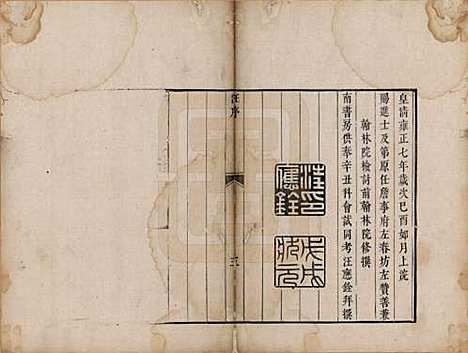 皇清雍正七年歲次己酉如月上浣
賜進士及第原任詹事府左春坊左贊善兼
翰林院檢討前翰林院修撰
南書房供奉辛丑科會試同考汪應銓拜撰
汪印應銓
戊戌狀元
汪序
三